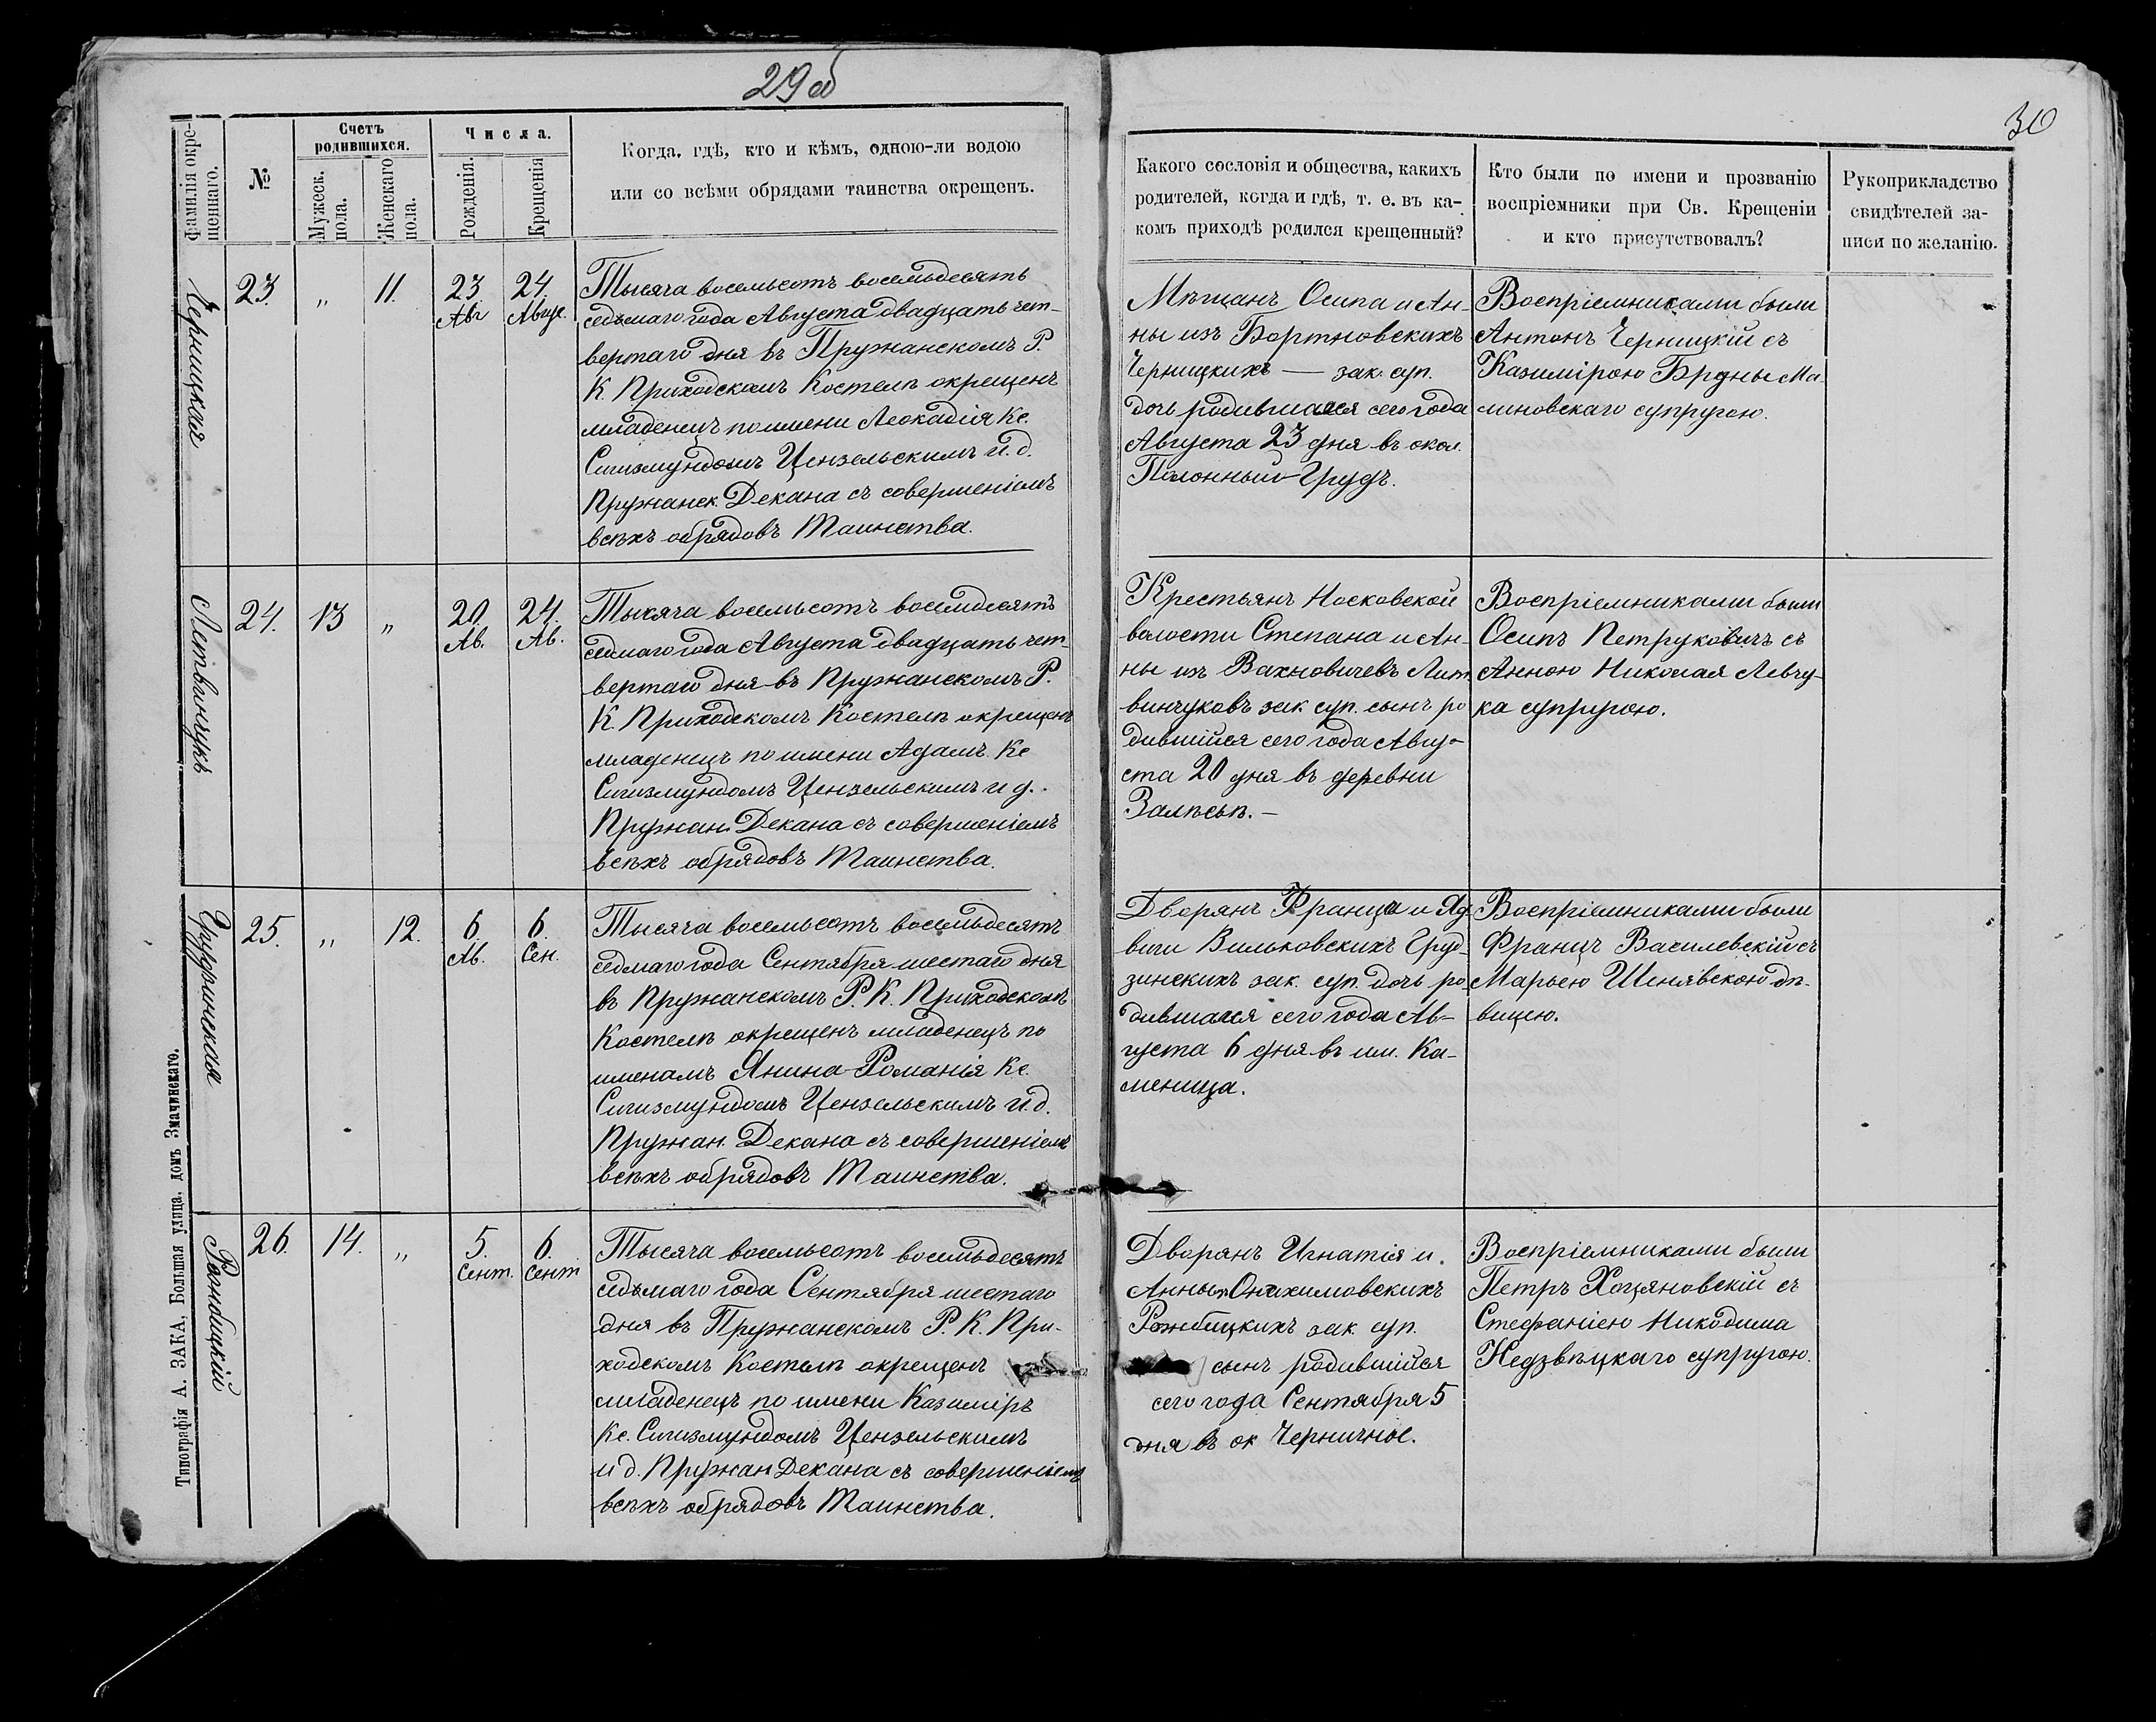 29об
30
Фамилія окре-
щеннаго.
№
Счетъ
родившихся.
Мужеск.
пола.
Женскаго
пола.
Числа.
Рожденія.
Крещенія
Когда, гдѣ, кто и кѣмъ, одною-ли водою
или со всѣми обрядами таинства окрещенъ.
Какого сословія и общества, какихъ
родителей, когда и гдѣ, т. е. въ ка-
комъ приходѣ родился крещенный?
Кто были по имени и прозванію
воспріемники при Св. Крещеніи
и кто присутствовалъ?
Рукоприкладство
свидѣтелей за-
писи по желанію.
Черницкая
23.
„
11.
23
Авг
24
Авгус.
Тысяча восемьсотъ восемьдесятъ
седьмаго года Августа двадцать чет-
вертаго дня въ Пружанскомъ Р.
К. Приходскомъ Костелѣ окрещенъ
младенецъ по имени Леокадія Кс.
Сигизмундомъ Цензельскимъ и. д.
Пружанск. Декана съ совершеніемъ
всѣхъ обрядовъ Таинства.
Мѣщанъ Осипа и Ан-
ны изъ Бортновскихъ
Черницкихъ — зак. суп.
дочь родившаяся сего года
Августа 23 дня въ окол.
Полонный-Грудъ.
Воспріемниками были
Антонъ Черницкій съ
Казимірою Бруны Ма-
линовскаго супругою.
Литвинчукъ
24.
13
„
20
Ав.
24.
Ав.
Тысяча восемьсотъ восемдесятъ
седмаго года Августа двадцать чет-
вертаго дня въ Пружанскомъ Р.
К. Приходскомъ Костелѣ окрещенъ
младенецъ по имени Адамъ Кс
Сигизмундомъ Цензельскимъ и д.
Пружан. Декана съ совершеніемъ
всѣхъ обрядовъ Таинства.
Крестьянъ Носковской
волости Степана и Ан-
ны изъ Вахновичевъ Лит
винчуковъ зак. суп. сынъ ро
дившійся сего года Авгу-
ста 20 дня въ деревни
Залѣсьѣ. —
Воспріемниками были
Осипъ Петруковичъ съ
Анною Николая Левчу-
ка супругою.
Грудзинская
25.
„
12.
6
Ав.
6.
Сен.
Тысяча восемьсотъ восемьдесятъ
седмаго года Сентября шестаго дня
въ Пружанскомъ Р. К. Приходскомъ
Костелѣ окрещенъ младенецъ по
именамъ Янина-Романія Кс.
Сигизмундомъ Цензельскимъ и. д.
Пружан. Декана съ совершеніемъ
всѣхъ обрядовъ Таинства.
Дворянъ Франца и Яд-
виги Вильковскихъ Груд-
зинскихъ зак. суп. дочь ро-
дившаяся сего года Ав-
густа 6 дня въ им. Ка-
меница.
Воспріемниками были
Францъ Василевскій съ
Марьею Шенявскою дѣ-
вицею.
Рожбицкій
26.
14.
„
5.
Сент.
6.
Сент
Тысяча восемьсотъ восемьдесятъ
седьмаго года Сентября шестаго
дня въ Пружанскомъ Р. К. При-
ходскомъ Костелѣ окрещенъ
младенецъ по имени Казиміръ
Кс. Сигизмундомъ Цензельскимъ
и д. Пружан Декана съ совершеніемъ
всѣхъ обрядовъ Таинства.
Дворянъ Игнатія и
Анны Онихимовскихъ
Рожбицкихъ зак. суп.
сынъ родившійся
сего года Сентября 5
дня въ ок Черничное.
Воспріемниками были
Петръ Хоцяновскій съ
Стефаніею Никодима
Недзвѣцкаго супругою.
Типографія А. ЗАКА, Большая улица, домъ Змачинскаго.